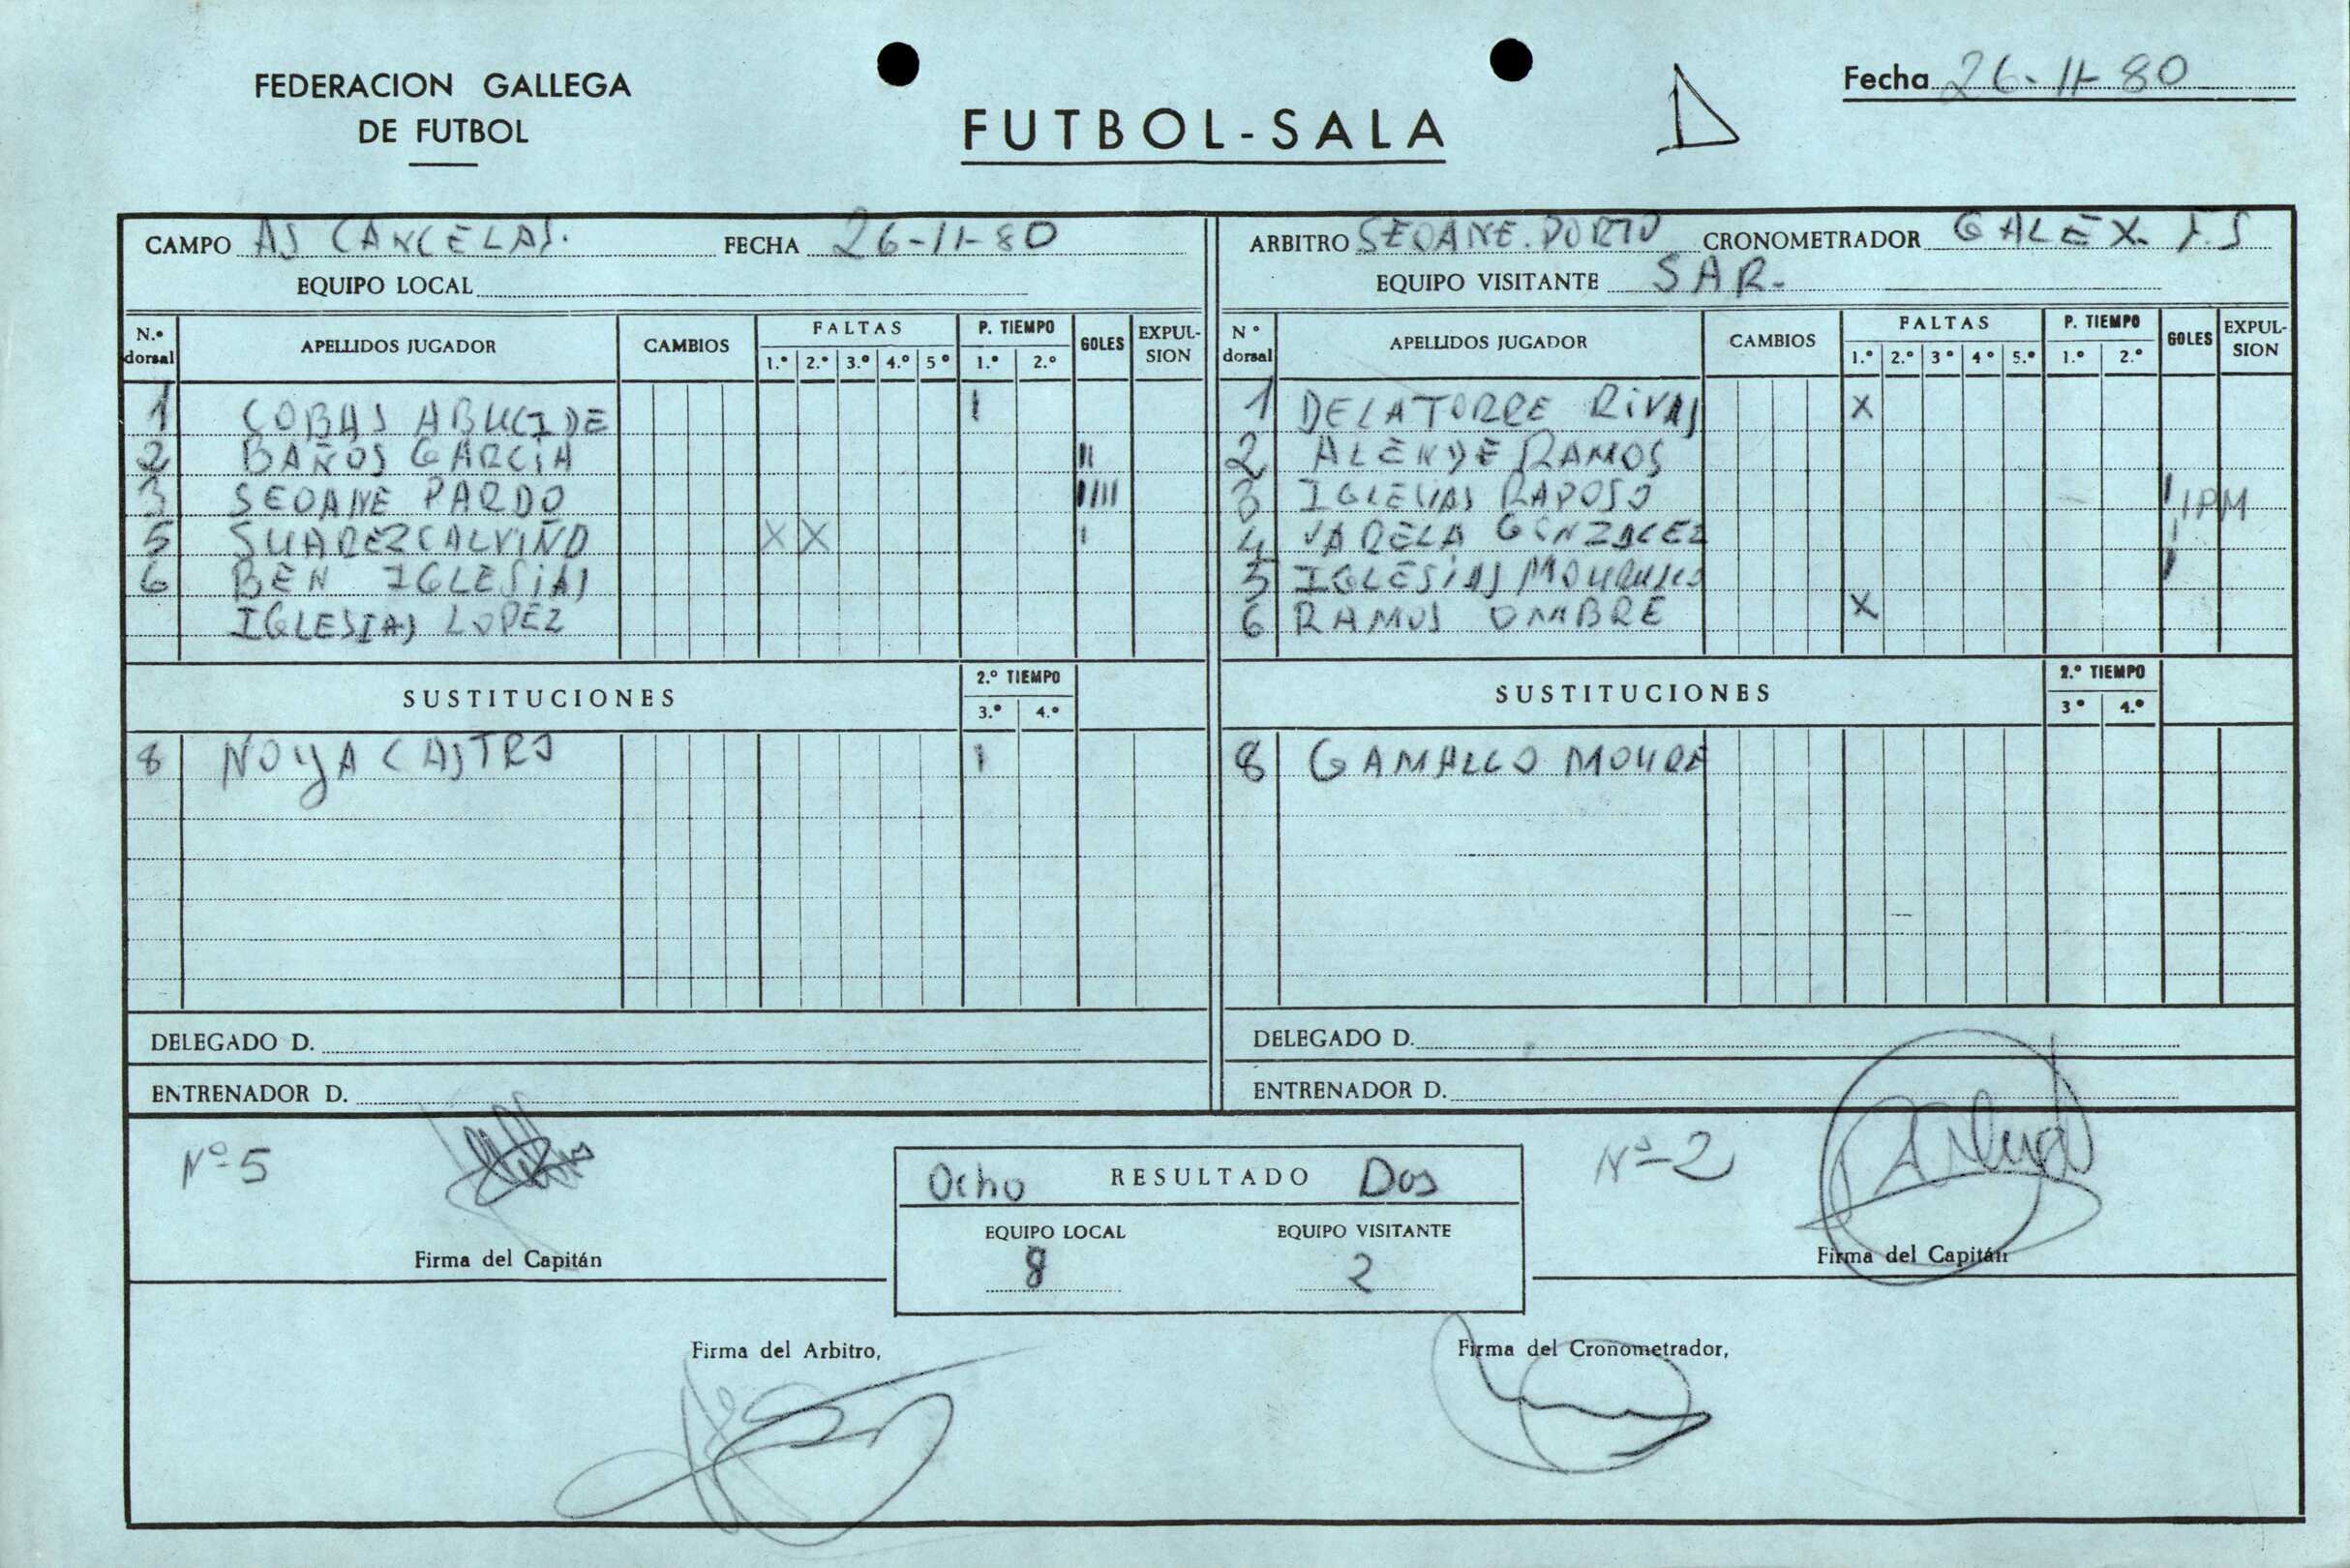 FEDERACION GALLEGA
DE FUTBOL
FUTBOL-SALA
Fecha 26-11-80
CAMPO AS CANCELAS. FECHA 26-11-80
EQUIPO LOCAL
N.º dorsal APELLIDOS JUGADOR CAMBIOS FALTAS 1.º 2.º 3.º 4.º 5º P. TIEMPO 1.º 2.º GOLES EXPULSION
1 COBAS ABUCIDE I
2 BAÑOS GARCIA II
3 SEOANE PARDO IIIII
5 SUAREZ CALVIÑO X X I
6 BEN IGLESIAS
IGLESIAS LOPEZ
SUSTITUCIONES 2.º TIEMPO 3.º 4.º
8 NOYA CASTRO I
DELEGADO D.
ENTRENADOR D.
ARBITRO SEOANE. PORTO CRONOMETRADOR GALEX F.S
EQUIPO VISITANTE SAR.
Nº dorsal APELLIDOS JUGADOR CAMBIOS FALTAS 1.º 2.º 3º 4º 5.º P. TIEMPO 1.º 2.º GOLES EXPULSION
1 DELATORRE RIVAS X
2 ALENDE RAMOS
3 IGLESIAS RAPOSO I IPM
4 VARELA GONZALEZ
5 IGLESIAS I
6 RAMOS OMBRE X
SUSTITUCIONES 2.º TIEMPO 3º 4.º
8 GAMALLO MOURE
DELEGADO D.
ENTRENADOR D.
Nº-5
Firma del Capitán
Ocho RESULTADO Dos
EQUIPO LOCAL EQUIPO VISITANTE
8 2
Nº-2
Firma del Capitán
Firma del Arbitro,
Firma del Cronometrador,